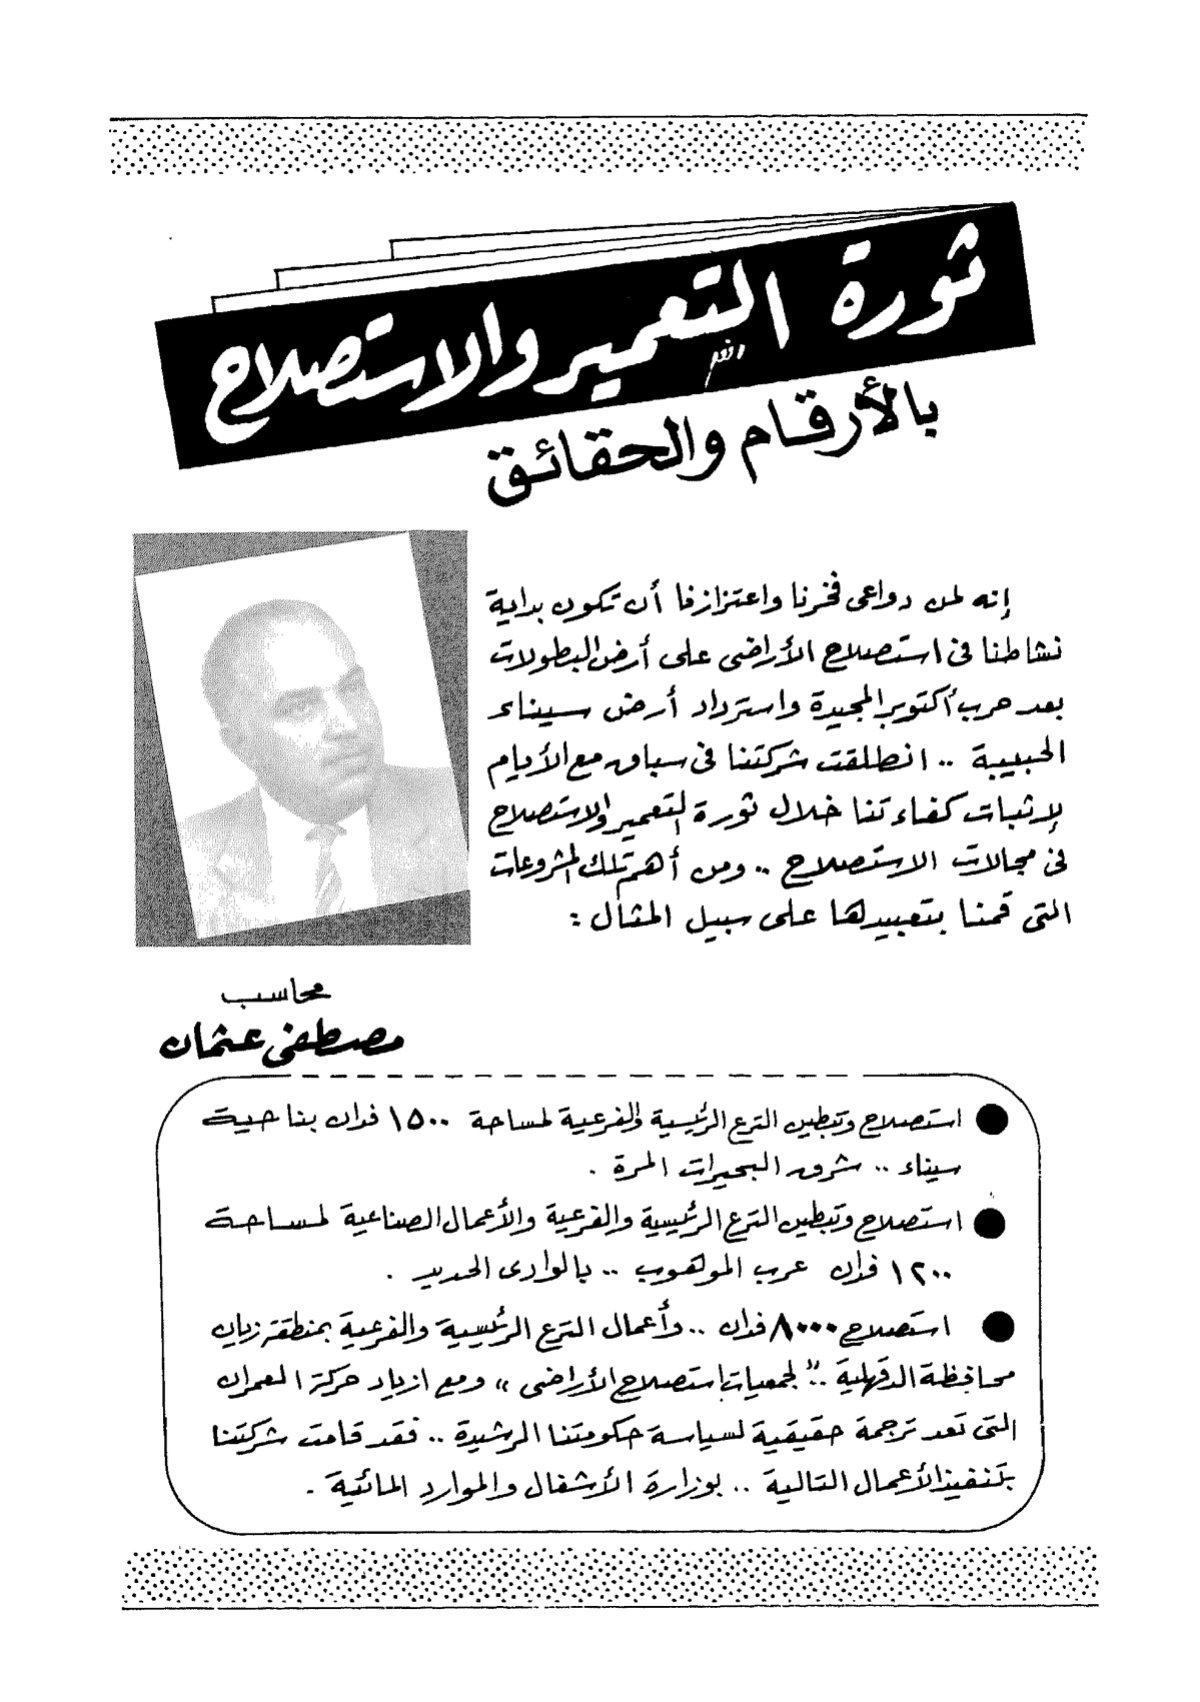 ثورة التعمير والاستصلاح
بالأرقام والحقائق
إنه لمن دواعى فخرنا واعتزازنا أن تكون بداية
نشاطنا فى استصلاح الأراضى على أرض البطولات
بعد حرب أكتوبر المجيدة واسترداد أرض سيناء
الحبيبة .. انطلقت شركتنا فى سباق مع الأيام
لإثبات كفاءتنا خلال ثورة التعمير والاستصلاح
فى مجالات الاستصلاح .. ومن أهم تلك المشروعات
التى قمنا بتعبيدها على سبيل المثال :
محاسب
مصطفى عثمان
● استصلاح وتبطين الترع الرئيسية والفرعية لمساحة ١٥٠٠ فدان بناحية
سيناء .. شرق البحيرات المرة .
● استصلاح وتبطين الترع الرئيسية والفرعية والأعمال الصناعية لمساحة
١٢٠٠ فدان عرب الموهوب .. بالوادى الجديد .
● استصلاح ٨٠٠٠ فدان .. وأعمال الترع الرئيسية والفرعية بمنطقة زيان
محافظة الدقهلية .. " لجمعيات استصلاح الأراضى " ومع ازدياد حركة العمران
التى تعد ترجمة حقيقية لسياسة حكومتنا الرشيدة .. فقد قامت شركتنا
بتنفيذ الأعمال التالية .. بوزارة الأشغال والموارد المائية .